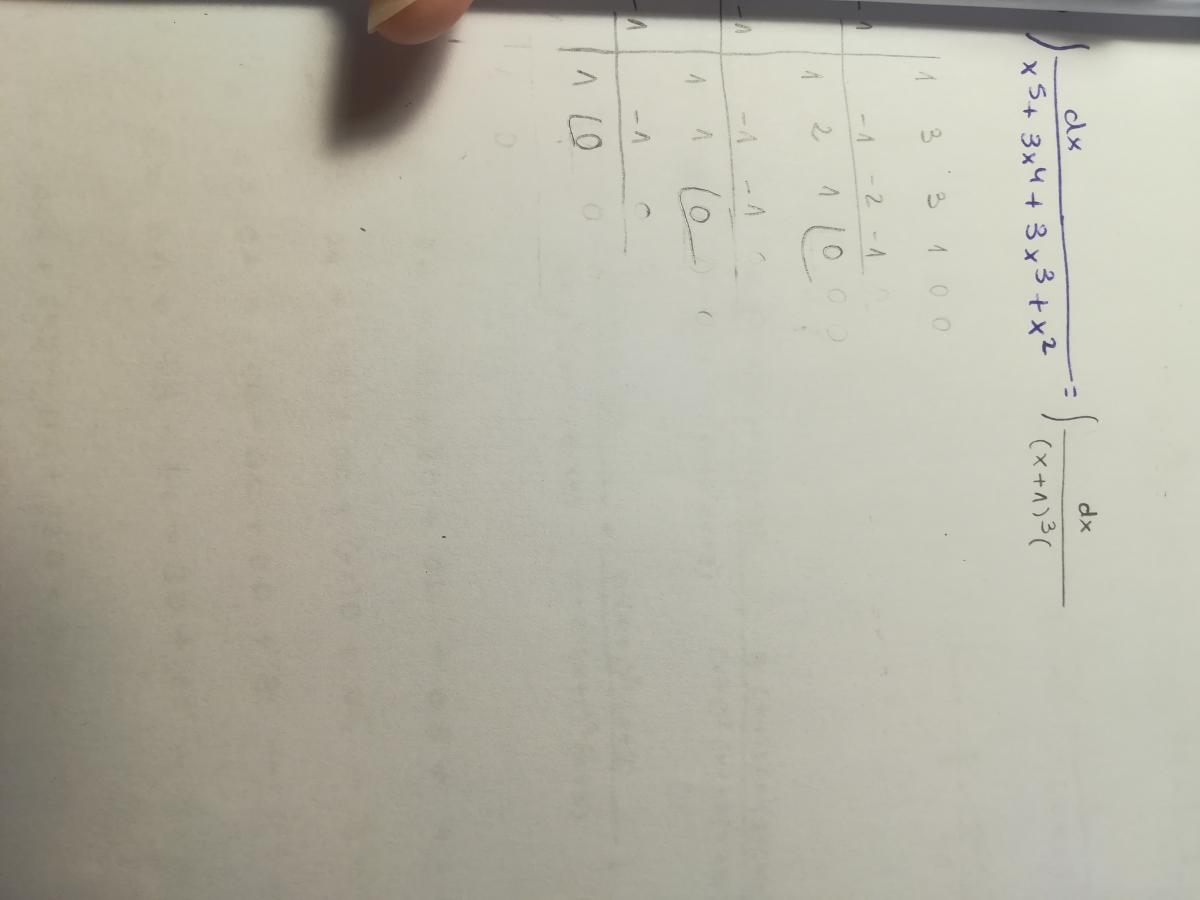 ∫ dx / (x⁵ + 3x⁴ + 3x³ + x²) = ∫ dx / ((x+1)³(
1 3 3 1 0 0
-1 -1 -2 -1
1 2 1 (0 0 0
-1 -1 -1
1 1 (0
-1 -1 0
1 (0 0